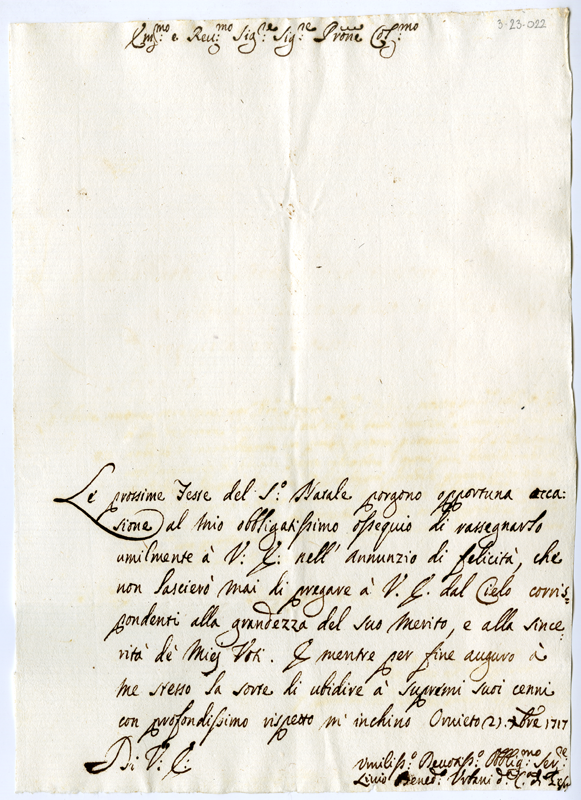 3-23-022
Em:mo e Reu:mo Sig:re Sig:re Prōne Col:mo
Le prossime Feste del S:o Natale porgono opportuna occa:
sione al mio obbligatissimo ossequio di rassegnarlo
umilmente à V: E: nell' annunzio di felicità, che
non lascierò mai di pregare à V. E. dal Cielo corris=
pondenti alla grandezza del suo merito, e alla since
rità de Miej Voti. E mentre per fine auguro à
me stesso la sorte di ubidire à supremi suoi cenni
con profondissimo rispetto m' inchino Orvieto 21. Xbre 1717
Di V: E:
Umiliss:o Deuotiss:o Obblig:mo Ser:re
Livio Bened:o